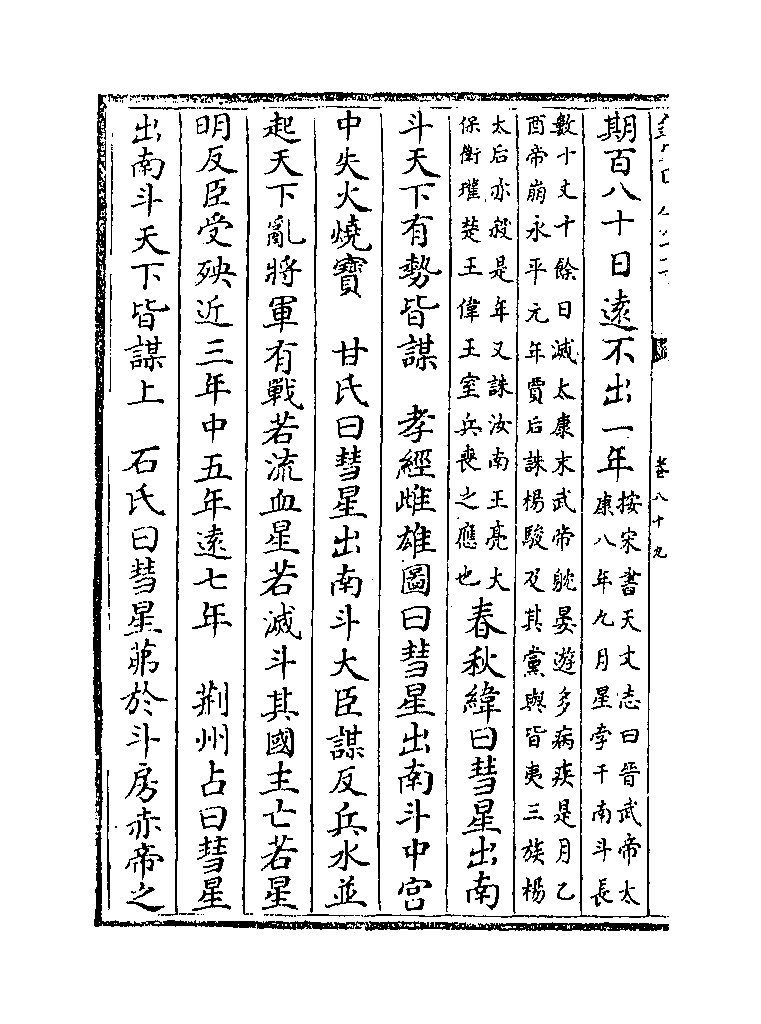 卷八十九
期百八十日遠不出一年
按宋書天文志曰晉武帝太
康八年九月星孛于南斗長
數十丈十餘日滅太康末武帝躭晏遊多病疾是月乙
酉帝崩永平元年賈后誅楊駿及其黨與皆夷三族楊
太后亦殺是年又誅汝南王亮大
保衡瓘楚王偉王室兵喪之應也
春秋緯曰彗星出南
斗天下有勢皆謀　孝經雌雄圖曰彗星出南斗中宮
中失火燒寶　甘氏曰彗星出南斗大臣謀反兵水並
起天下亂將軍有戰若流血星若滅斗其國主亡若星
明反臣受殃近三年中五年遠七年　荆州占曰彗星
出南斗天下皆謀上　石氏曰彗星茀於斗房赤帝之